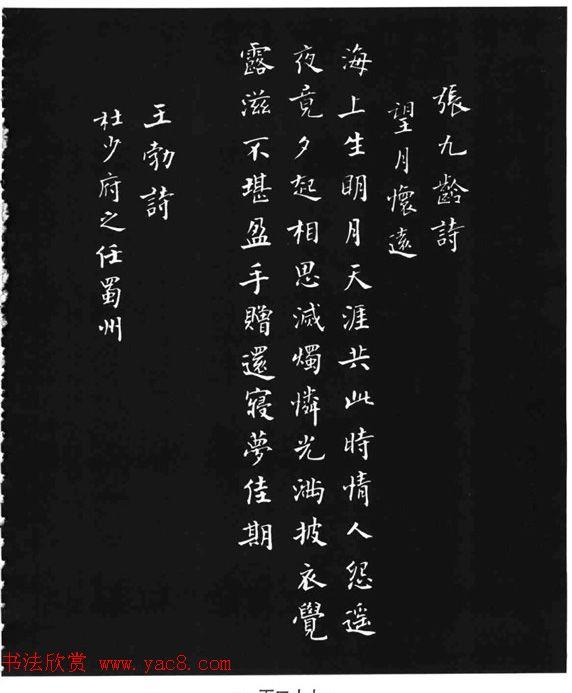 張九齡詩
望月懷遠
海上生明月天涯共此時情人怨遥
夜竟夕起相思滅燭憐光滿披衣覺
露滋不堪盈手贈還寝夢佳期
王勃詩
杜少府之任蜀州
书法欣赏 www.yac8.com